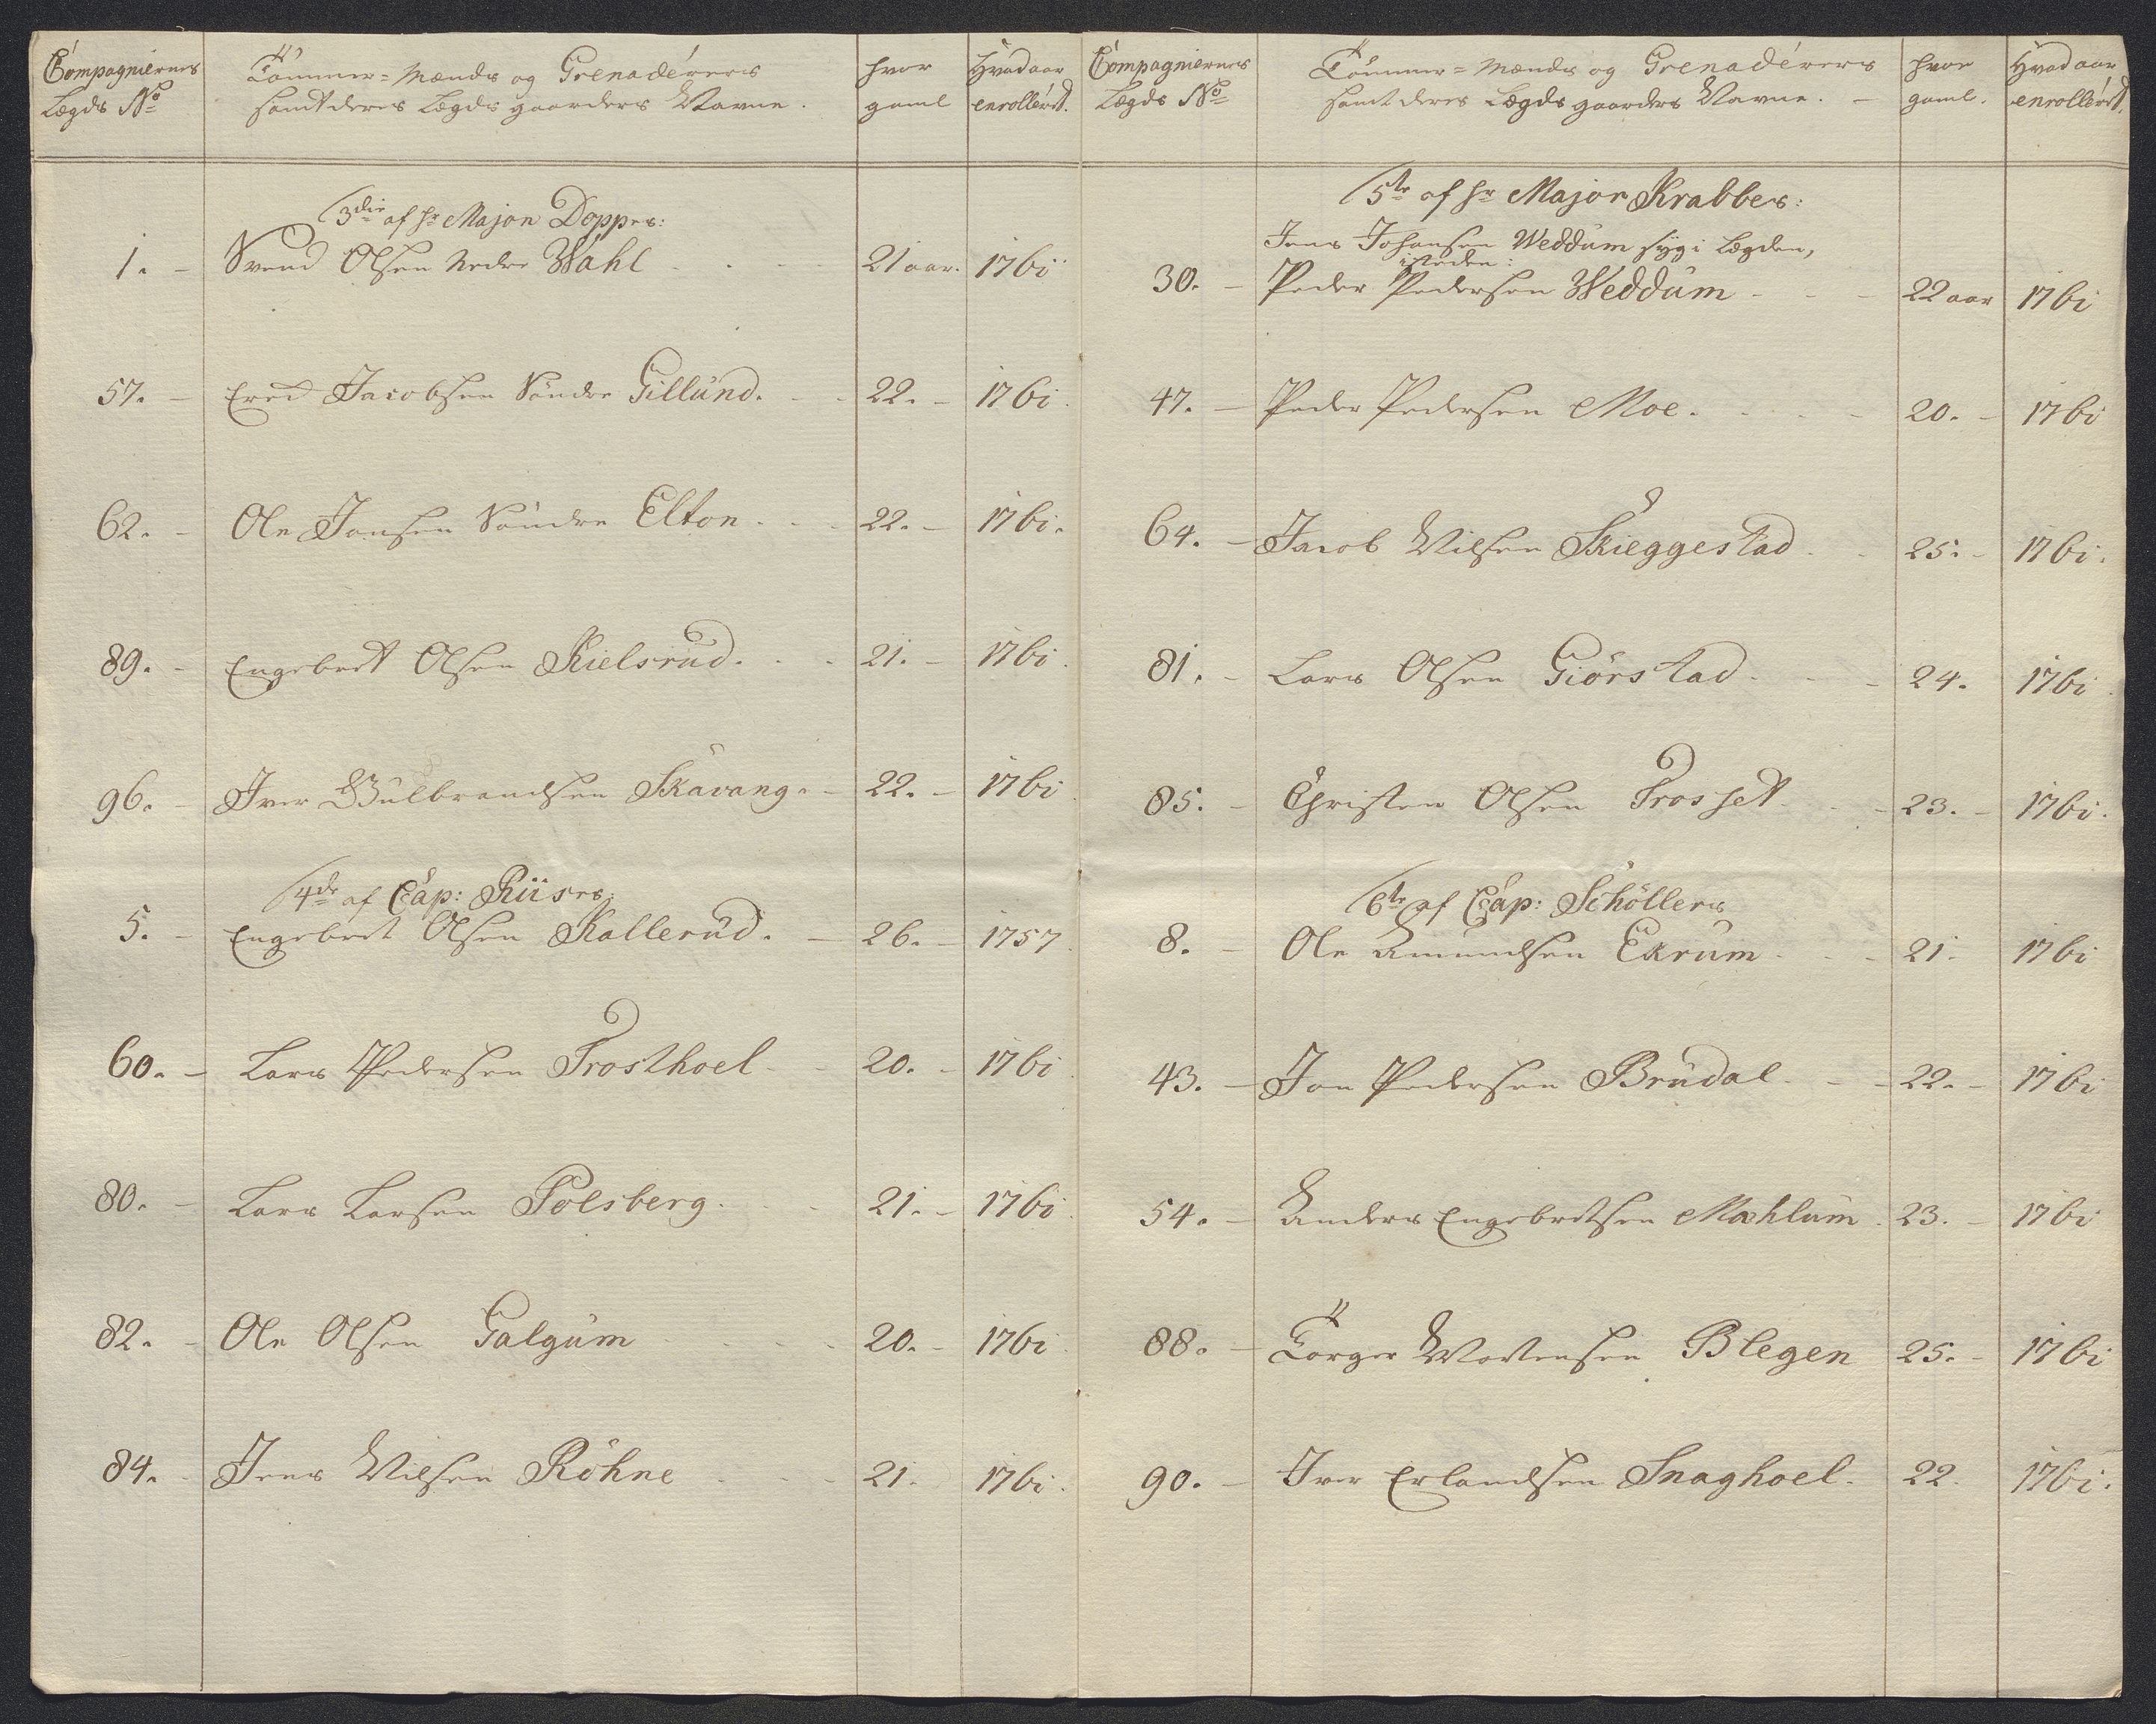 Compagniernes
Lægds No
Tømmer=Mænds og Grenadérers
samt deres Lægds gaarders Navne.
hvor
gaml
Hvad aar
enrolléret.
3die af Hr Major Doppes:
1. - Svend Olsen Nedre Wahl - - - 21 aar. 1761
57. - Ered Jacobsen Søndre Gillund. - - 22. - 1761.
62. - Ole Jonsen Søndre Elton - - - 22. - 1761.
89. - Engebret Olsen Kielsrud. - - 21. - 1761.
96. - Iver Gulbrandsen Skavang. - 22. - 1761
4de af Cap: Riises:
5. - Engebret Olsen Kallerud. - 26. - 1757.
60. - Lars Pedersen Trosthoel - - 20. - 1761.
80. - Lars Larsen Polsberg. - - 21. - 1761.
82. - Ole Olsen Galgum - - - 20. - 1761.
84. - Jens Nilsen Röhne - - - 21. 1761.
Compagniernes
Lægds No
Tømmer=Mænds og Grenadérers
samt deres Lægds gaarders Navne. -
hvor
gaml.
Hvad aar
enrolléret.
5te af Hr Major Krabbes:
Jens Johansen Weddum syg i Lægden,
isteden:
30. - Peder Pedersen Weddum - - - 22 aar 1761
47. - Peder Pedersen Moe. - - - 20. - 1761
64. - Jacob Nilsen Skieggestad - - 25. - 1761.
81. - Lars Olsen Giörstad - - - 24. 1761.
85. - Christen Olsen Frosset - - - 23. - 1761.
6te af Cap: Schöllers
8. - Ole Amundsen Ekrum - - - 21. 1761
43. - Jon Pedersen Brudal - - - 22. - 1761
54. - Anders Engebretsen Mæhlum. 23. - 1761
88. - Torger Mortensen Blegen 25. - 1761
90. - Iver Erlandsen Snaghoel - 22. 1761.